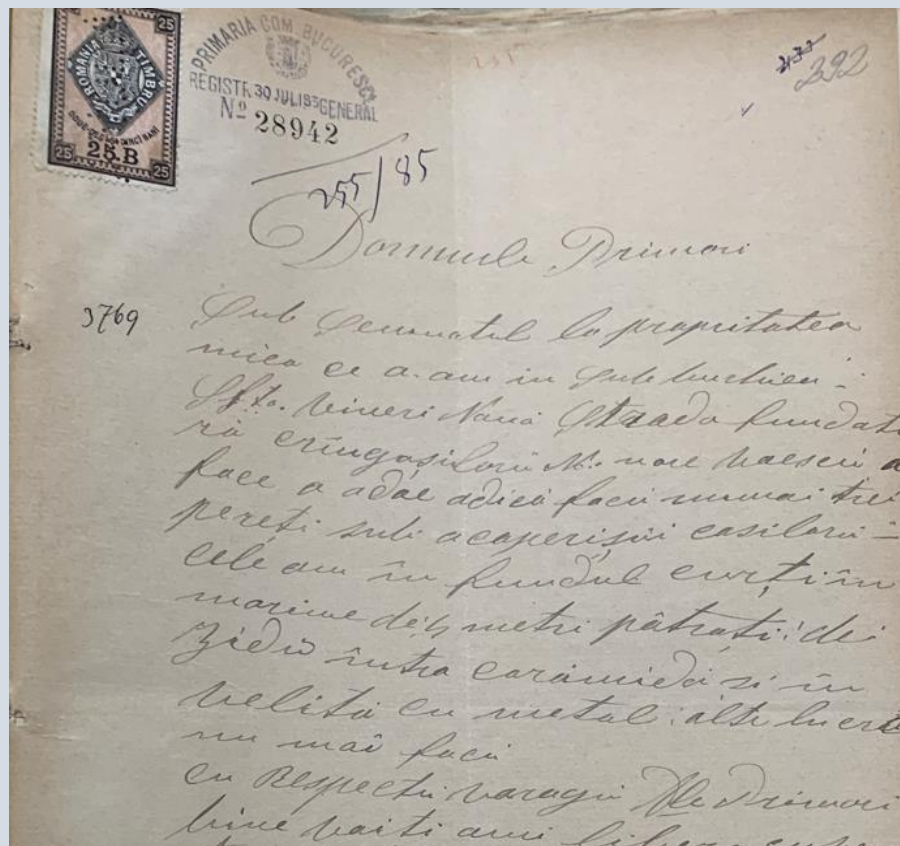 25 25
ROMANIA TIMBRU
25.B
25 25
PRIMARIA COM. BUCURESCI
REGISTR. 30 JUL 85 GENERAL
No 28942
392
255/85
Domnule Primari
3769
Sub Semnatul la propritatea
mica ce a. am in Sub
Sfta. Vineri Nouă Strada fundăt
ră crîngasiloru No. noue
face a adăe adică facu numai trei
pereți subt acoperișui casiloru -
cele am în fundul curți în
marime de metri pătrați: de
Zidu într'a caramidă si in
velită cu metal: alte lucră
nu mai facu
cu Respectu varogu Dle Primari
bine voiti ami